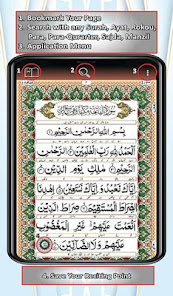 1. Bookmark Your Page
2. Search with any Surah, Ayat, Rokou
Para, Para-Qurarter, Sajda, Manzil
3. Application Menu
1
2
3
بِسْمِ اللّٰهِ الرَّحْمٰنِ الرَّحِيْمِ
اَلْحَمْدُ لِلّٰهِ رَبِّ الْعٰلَمِيْنَ الرَّحْمٰنِ
الرَّحِيْمِ مٰلِكِ يَوْمِ الدِّيْنِ
اِيَّاكَ نَعْبُدُ وَاِيَّاكَ نَسْتَعِيْنُ اِهْدِنَا
الصِّرَاطَ الْمُسْتَقِيْمَ صِرَاطَ الَّذِيْنَ
اَنْعَمْتَ عَلَيْهِمْ غَيْرِ الْمَغْضُوْبِ
عَلَيْهِمْ وَلَا الضَّآلِّيْنَ
4. Save Your Reciting Point